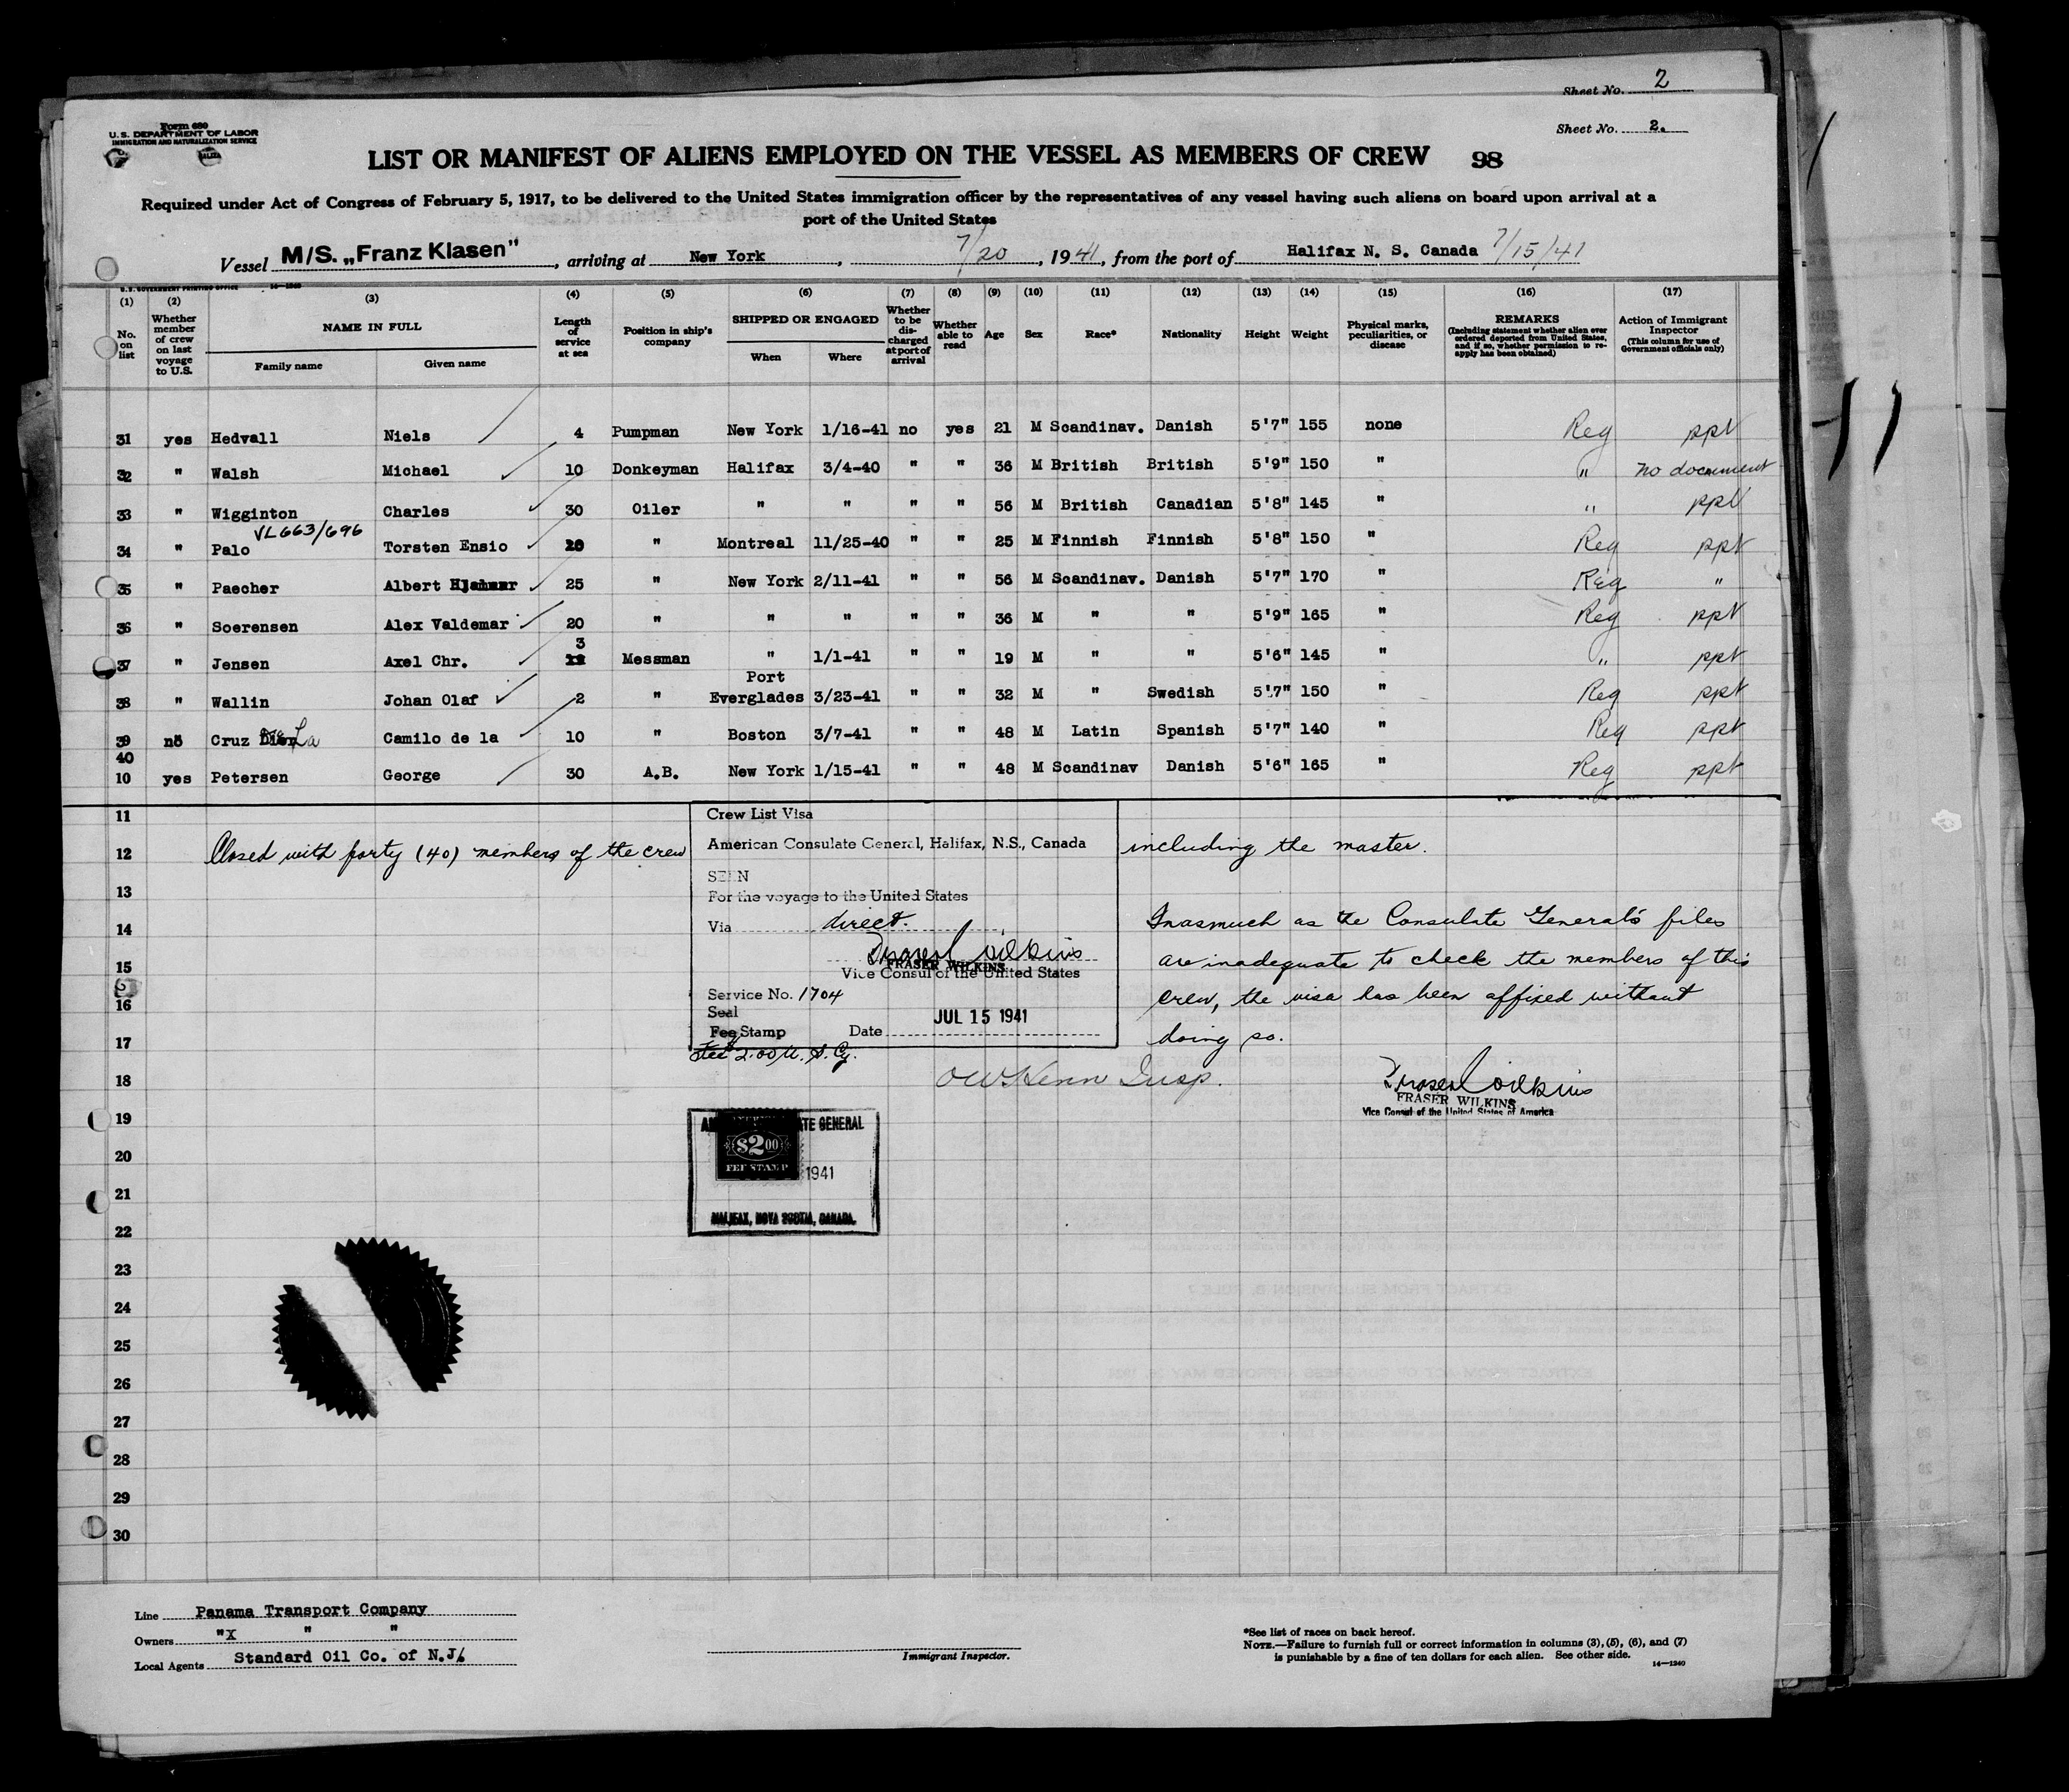 Sheet No. 2
Sheet No. 2.
Form 680
U.S. DEPARTMENT OF LABOR
IMMIGRATION AND NATURALIZATION SERVICE
LIST OR MANIFEST OF ALIENS EMPLOYED ON THE VESSEL AS MEMBERS OF CREW 98
Required under Act of Congress of February 5, 1917, to be delivered to the United States immigration officer by the representatives of any vessel having such aliens on board upon arrival at a
port of the United States
Vessel M/S. „Franz Klasen", arriving at New York, 7/20, 1941, from the port of Halifax N. S. Canada 7/15/41
U.S. GOVERNMENT PRINTING OFFICE 14-1240
(1) (2) (3) (4) (5) (6) (7) (8) (9) (10) (11) (12) (13) (14) (15) (16) (17)
No. on list
Whether member of crew on last voyage to U.S.
NAME IN FULL
Family name
Given name
Length of service at sea
Position in ship's company
SHIPPED OR ENGAGED
When
Where
Whether to be discharged at port of arrival
Whether able to read
Age
Sex
Race*
Nationality
Height
Weight
Physical marks, peculiarities, or disease
REMARKS
(Including statement whether alien ever ordered deported from United States, and if so, whether permission to reapply has been obtained)
Action of Immigrant Inspector
(This column for use of Government officials only)
31 yes Hedvall Niels 4 Pumpman New York 1/16-41 no yes 21 M Scandinav. Danish 5'7" 155 none Reg ppt
32 " Walsh Michael 10 Donkeyman Halifax 3/4-40 " " 36 M British British 5'9" 150 " " no document
33 " Wigginton Charles 30 Oiler " " " " 56 M British Canadian 5'8" 145 " " ppt
VL 663/696
34 " Palo Torsten Ensio 20 " Montreal 11/25-40 " " 25 M Finnish Finnish 5'8" 150 " Reg ppt
35 " Paecher Albert Hjalmar 25 " New York 2/11-41 " " 56 M Scandinav. Danish 5'7" 170 " Reg "
36 " Soerensen Alex Valdemar 20 " " " " " 36 M " " 5'9" 165 " Reg ppt
37 " Jensen Axel Chr. 3 Messman " 1/1-41 " " 19 M " " 5'6" 145 " " ppt
38 " Wallin Johan Olaf 2 " Port Everglades 3/23-41 " " 32 M " Swedish 5'7" 150 " Reg ppt
39 no Cruz De La Camilo de la 10 " Boston 3/7-41 " " 48 M Latin Spanish 5'7" 140 " Reg ppt
40
10 yes Petersen George 30 A.B. New York 1/15-41 " " 48 M Scandinav Danish 5'6" 165 " Reg ppt
11
12 Closed with forty (40) members of the crew including the master.
Crew List Visa
American Consulate General, Halifax, N.S., Canada
SEEN
For the voyage to the United States
Via direct.
Fraser Wilkins
FRASER WILKINS
Vice Consul of the United States
Service No. 1704
Seal
Fee Stamp Date JUL 15 1941
Fee $2.00 U. S. Cy.
Inasmuch as the Consulate General's files
are inadequate to check the members of this
crew, the visa has been affixed without
doing so.
Fraser Wilkins
FRASER WILKINS
Vice Consul of the United States of America
OW Henn Insp.
13
14
15
16
17
18
19
20
21
22
23
24
25
26
27
28
29
30
$2.00
FEE STAMP
1941
HALIFAX, NOVA SCOTIA, CANADA.
Line Panama Transport Company
Owners "x " "
Local Agents Standard Oil Co. of N.J.
Immigrant Inspector.
*See list of races on back hereof.
NOTE.—Failure to furnish full or correct information in columns (3), (5), (6), and (7)
is punishable by a fine of ten dollars for each alien. See other side.
14—1240